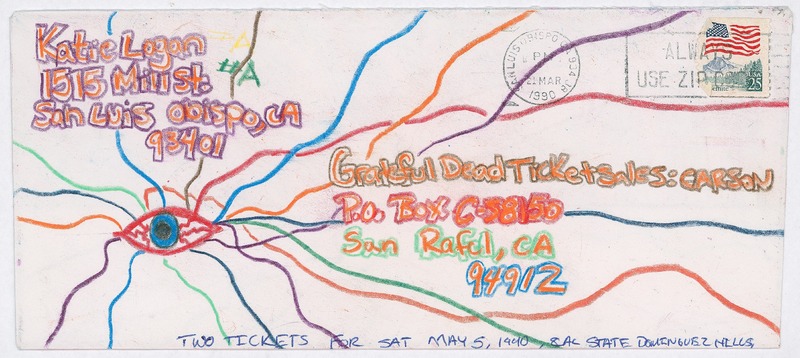 Katie Logan
1515 Mill St.
San Luis Obispo, CA
93401
#A
SAN LUIS OBISPO CA 934
PM
21 MAR
1990
ALWAYS
USE ZIP CODE
USA
25
Grateful Dead Ticket Sales: CARSON
P.O. Box C-S8150
San Rafel, CA
94912
TWO TICKETS FOR SAT MAY 5, 1990, CAL STATE DOMINGUEZ HILLS